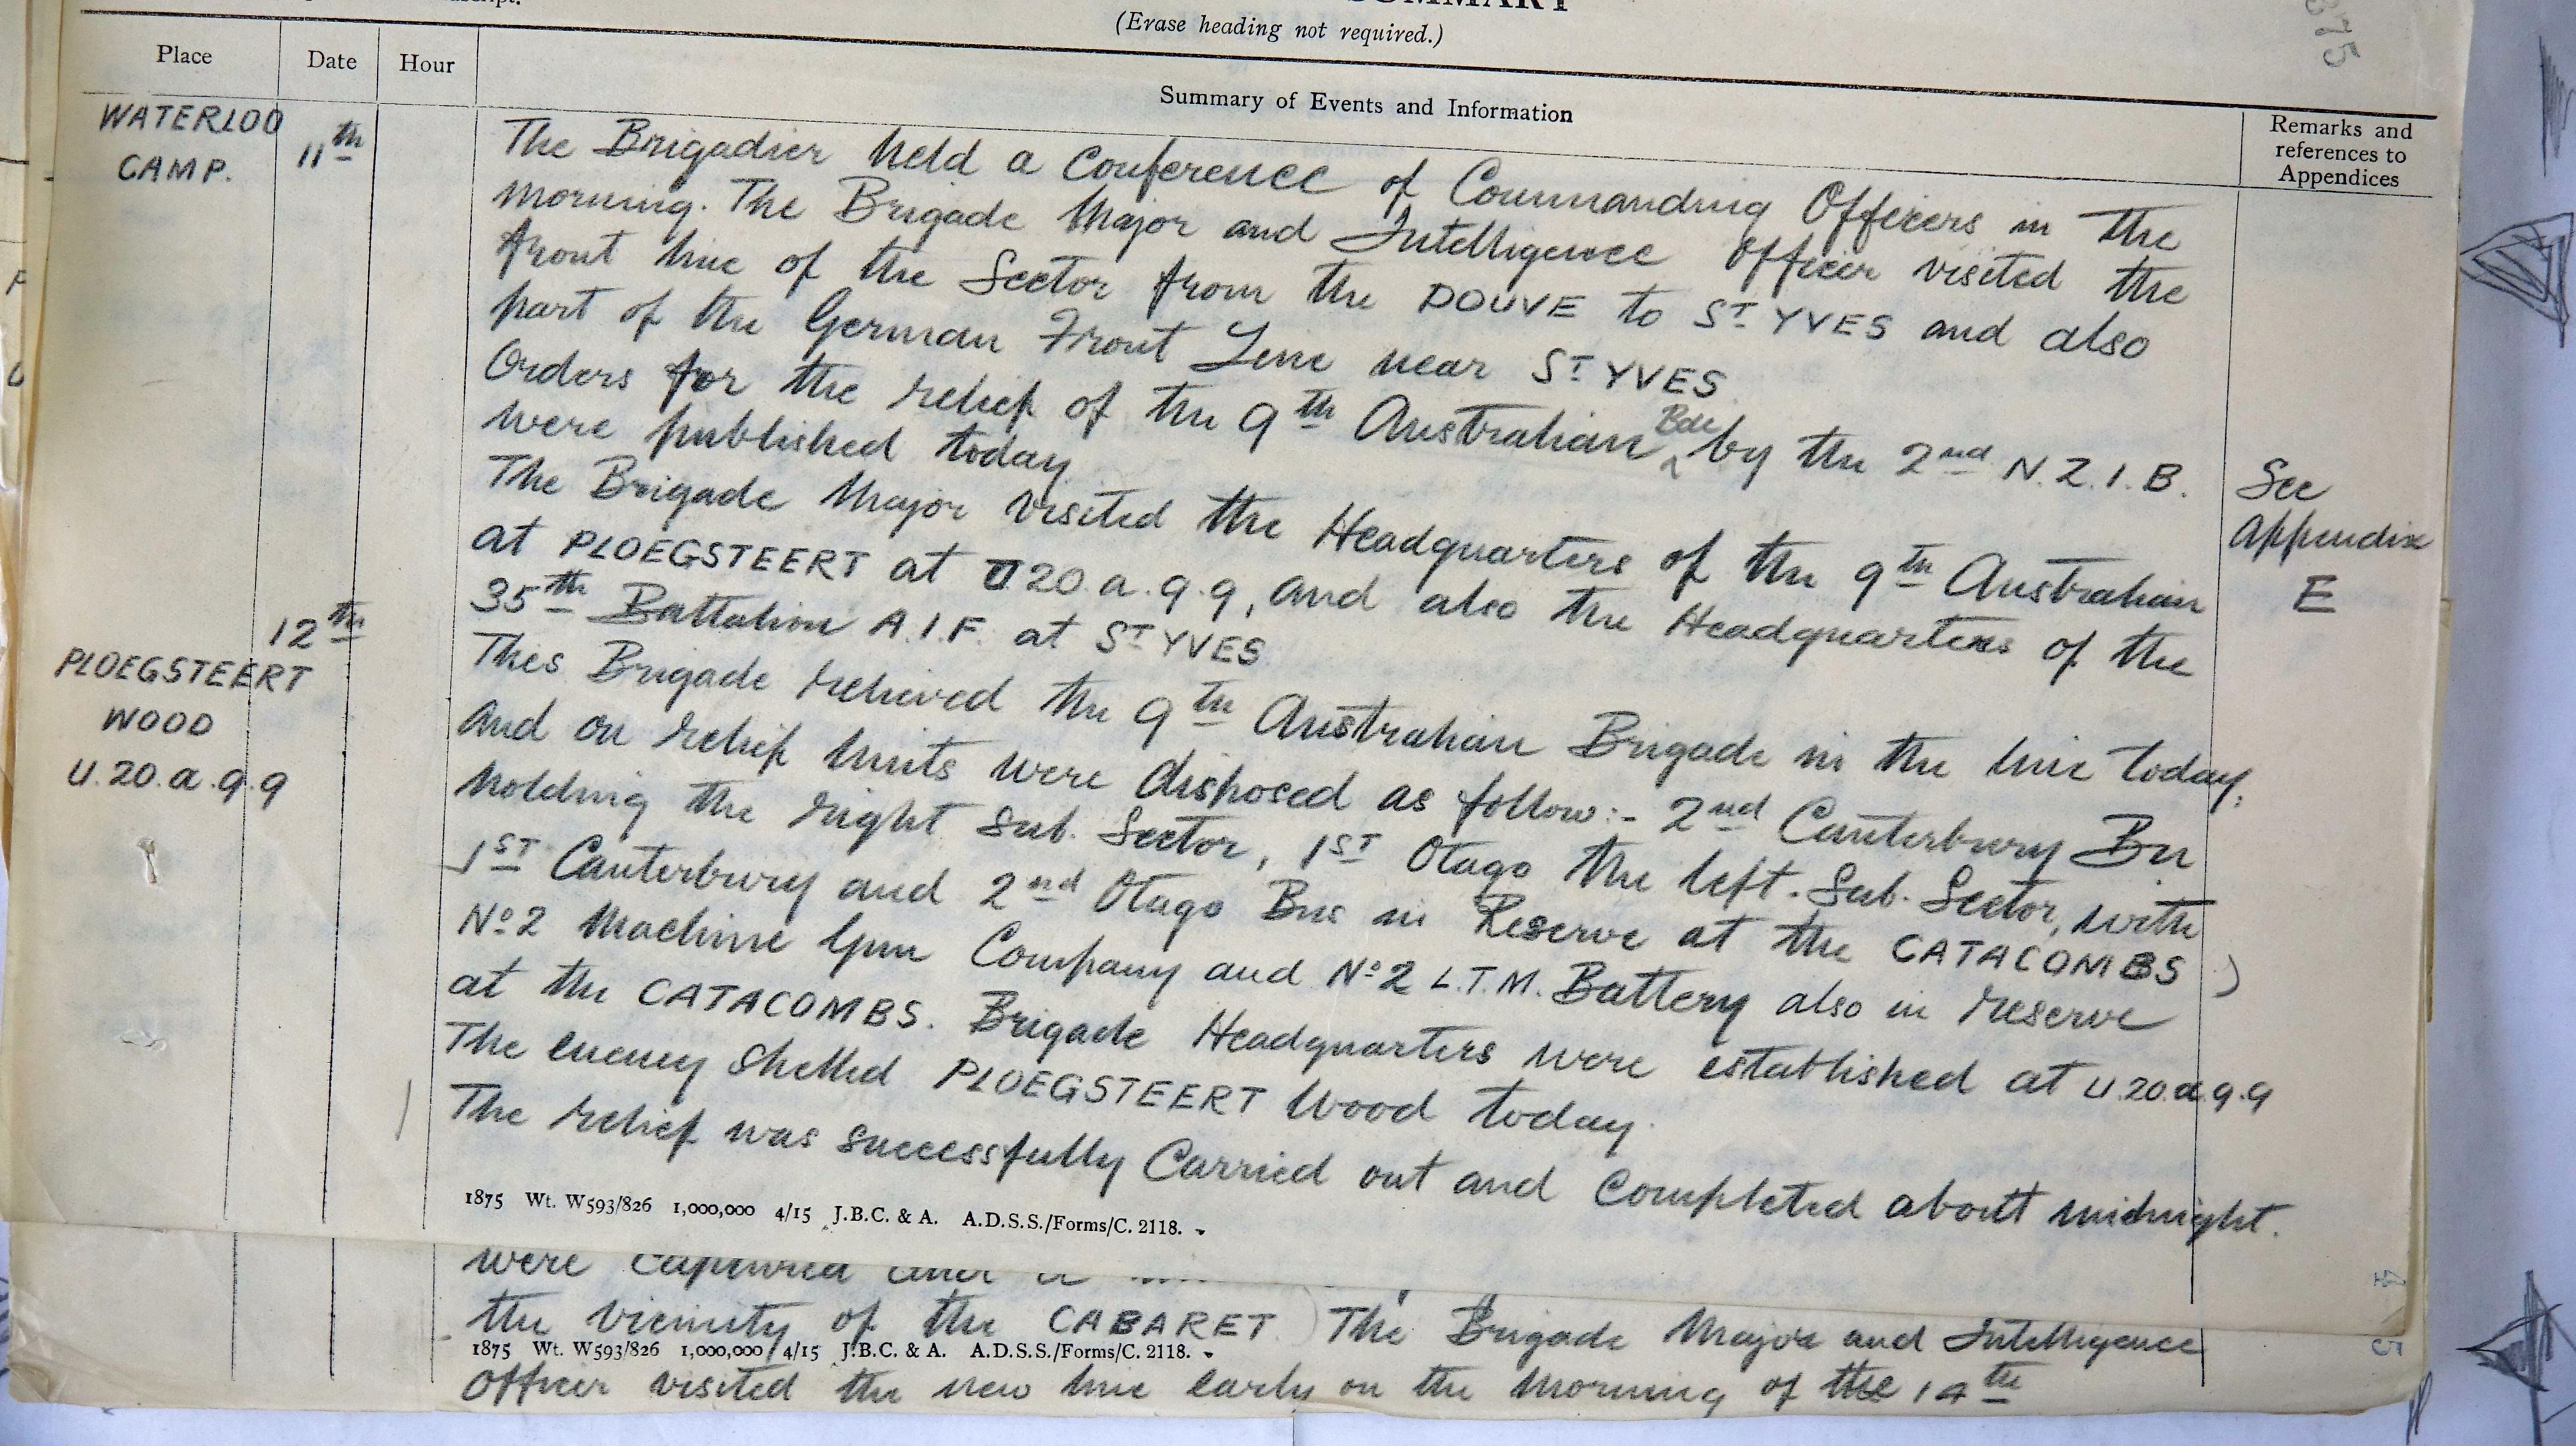 (Erase heading not required.)
Place Date Hour Summary of Events and Information Remarks and references to Appendices
WATERLOO CAMP. 11th The Brigadier held a Conference of Commanding Officers in the
morning. The Brigade Major and Intelligence Officer visited the
front line of the Sector from the DOUVE to ST YVES and also
part of the German Front Line near ST YVES.
Orders for the relief of the 9th Australian Bde by the 2nd N.Z.I.B. See
were published today Appendix
The Brigade Major visited the Headquarters of the 9th Australian E
at PLOEGSTEERT at U 20.a.9.9, and also the Headquarters of the
35th Battalion A.I.F. at ST YVES
12th This Brigade relieved the 9th Australian Brigade in the line today,
PLOEGSTEERT WOOD and on relief Units were disposed as follow:- 2nd Canterbury Bn
U.20.a.9.9 holding the right Sub. Sector, 1ST Otago the left. Sub. Sector, with
1ST Canterbury and 2nd Otago Bns in Reserve at the CATACOMBS
No 2 Machine Gun Company and No 2 L.T.M. Battery also in reserve
at the CATACOMBS. Brigade Headquarters were established at U.20.a.9.9
The enemy shelled PLOEGSTEERT Wood today.
The relief was successfully Carried out and Completed about midnight.
1875 Wt. W593/826 1,000,000 4/15 J.B.C. & A. A.D.S.S./Forms/C. 2118.
were captured and a
the vicinity of the CABARET. The Brigade Major and Intelligence
1875 Wt. W593/826 1,000,000 4/15 J.B.C. & A. A.D.S.S./Forms/C. 2118.
Officer visited the new line early on the morning of the 14th